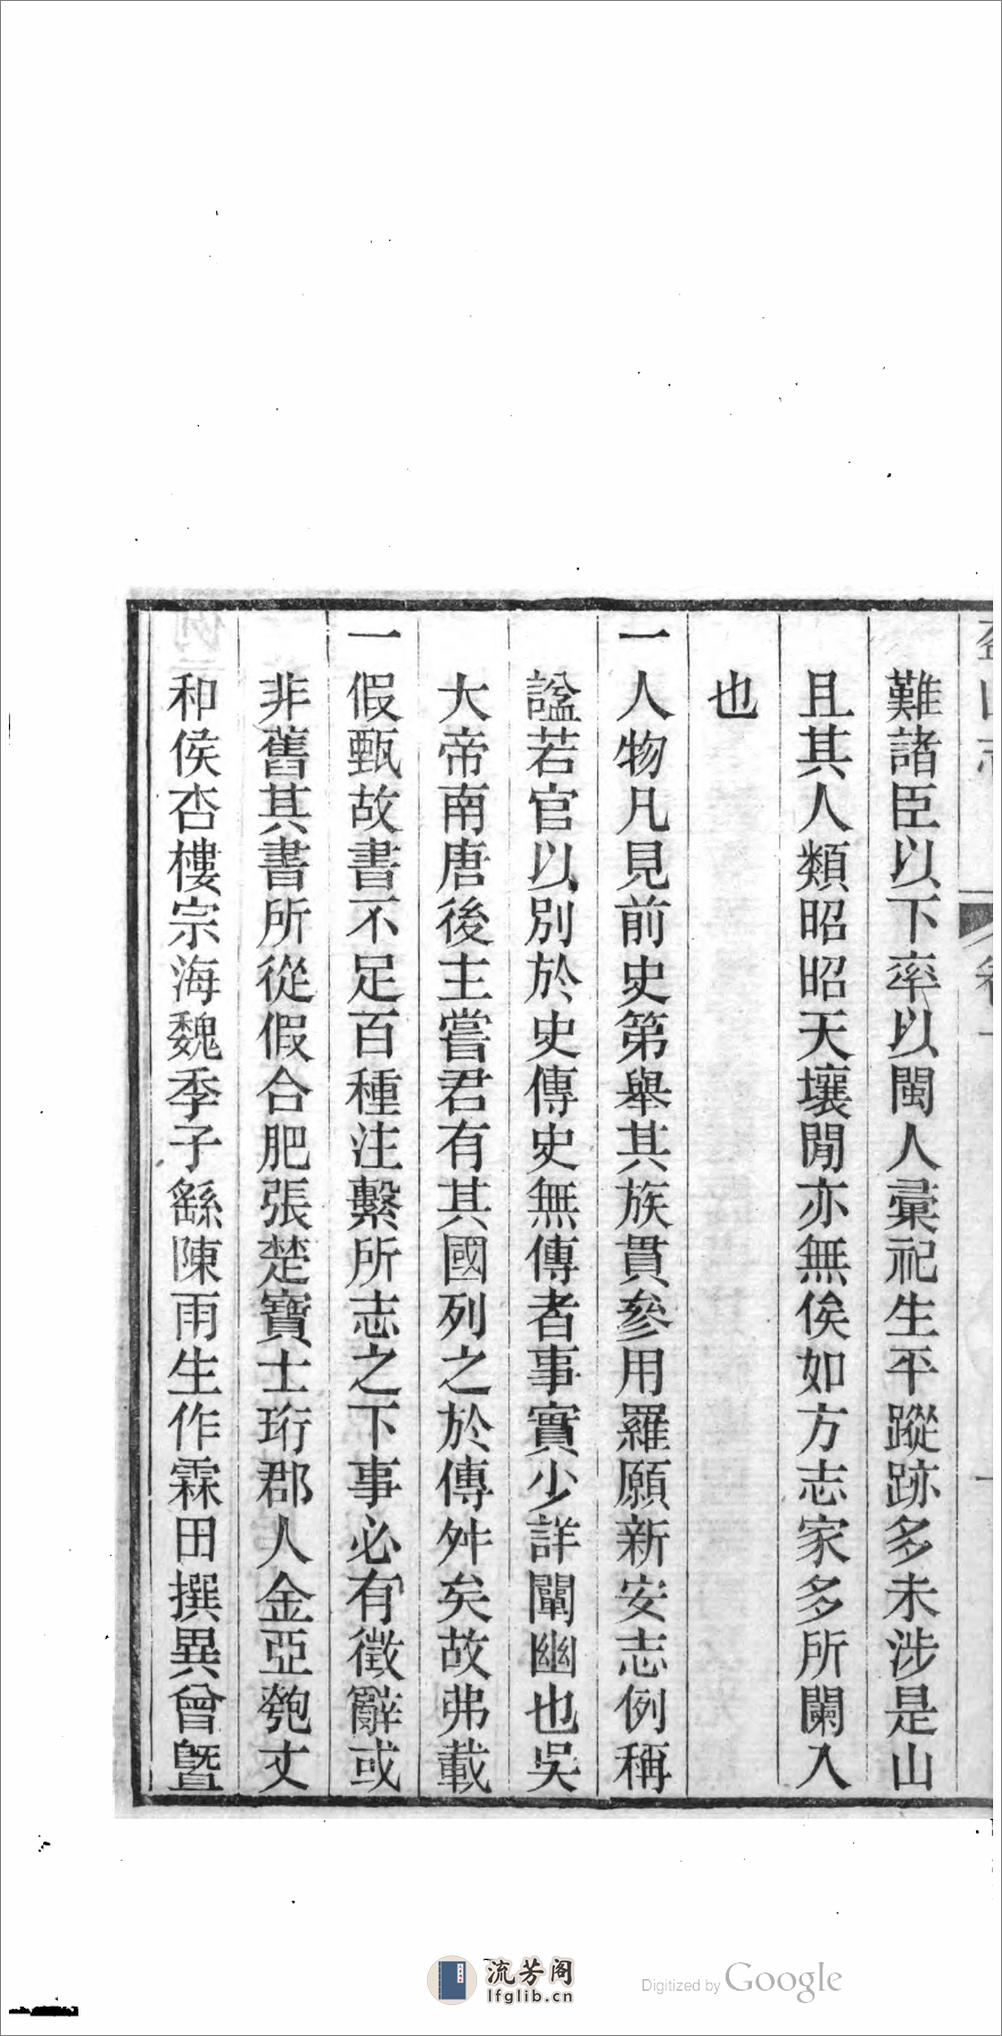 難諸臣以下率以閩人彙祀生平蹤跡多未涉是山
且其人類昭昭天壤閒亦無俟如方志家多所闌入
也
一人物凡見前史第舉其族貫參用羅願新安志例稱
諡若官以別於史傳史無傳者事實少詳闡幽也吳
大帝南唐後主嘗君有其國列之於傳舛矣故弗載
一假甄故書不足百種注繫所志之下事必有徵辭或
非舊其書所從假合肥張楚寶士珩郡人金亞匏文
和侯杏樓宗海魏季子繇陳雨生作霖田撰異曾曁
流芳阁
lfglib.cn
Digitized by Google